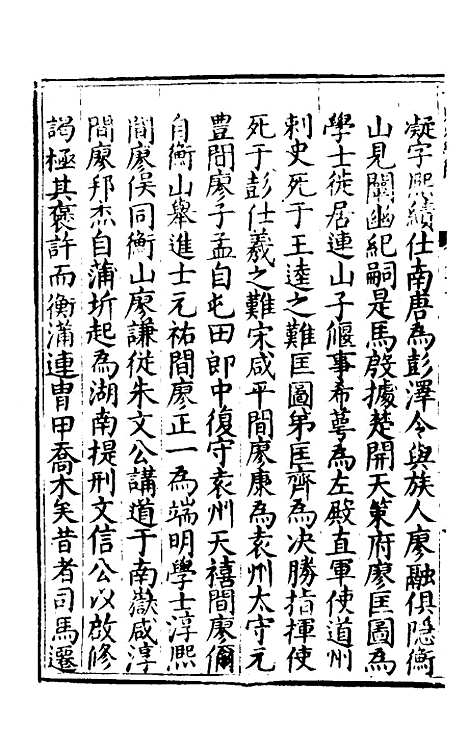 凝字熙績仕南唐為彭澤令與族人廖融俱隱衡
山見闡幽紀嗣是馬殷據楚開天策府廖匡圖為
學士徙居連山子偃事希萼為左殿直軍使道州
刺史死于王逵之難匡圖弟匡齊為决勝指揮使
死于彭仕羲之難宋咸平間廖康為袁州太守元
豊間廖子孟自屯田郎中復守袁州天禧間廖儞
自衡山舉進士元祐間廖正一為端明學士淳熙
間廖俁同衡山廖謙從朱文公講道于南嶽咸淳
間廖邦杰自蒲圻起為湖南提刑文信公以啟修
謁極其褒許而衡蒲連胄甲喬木矣昔者司馬遷